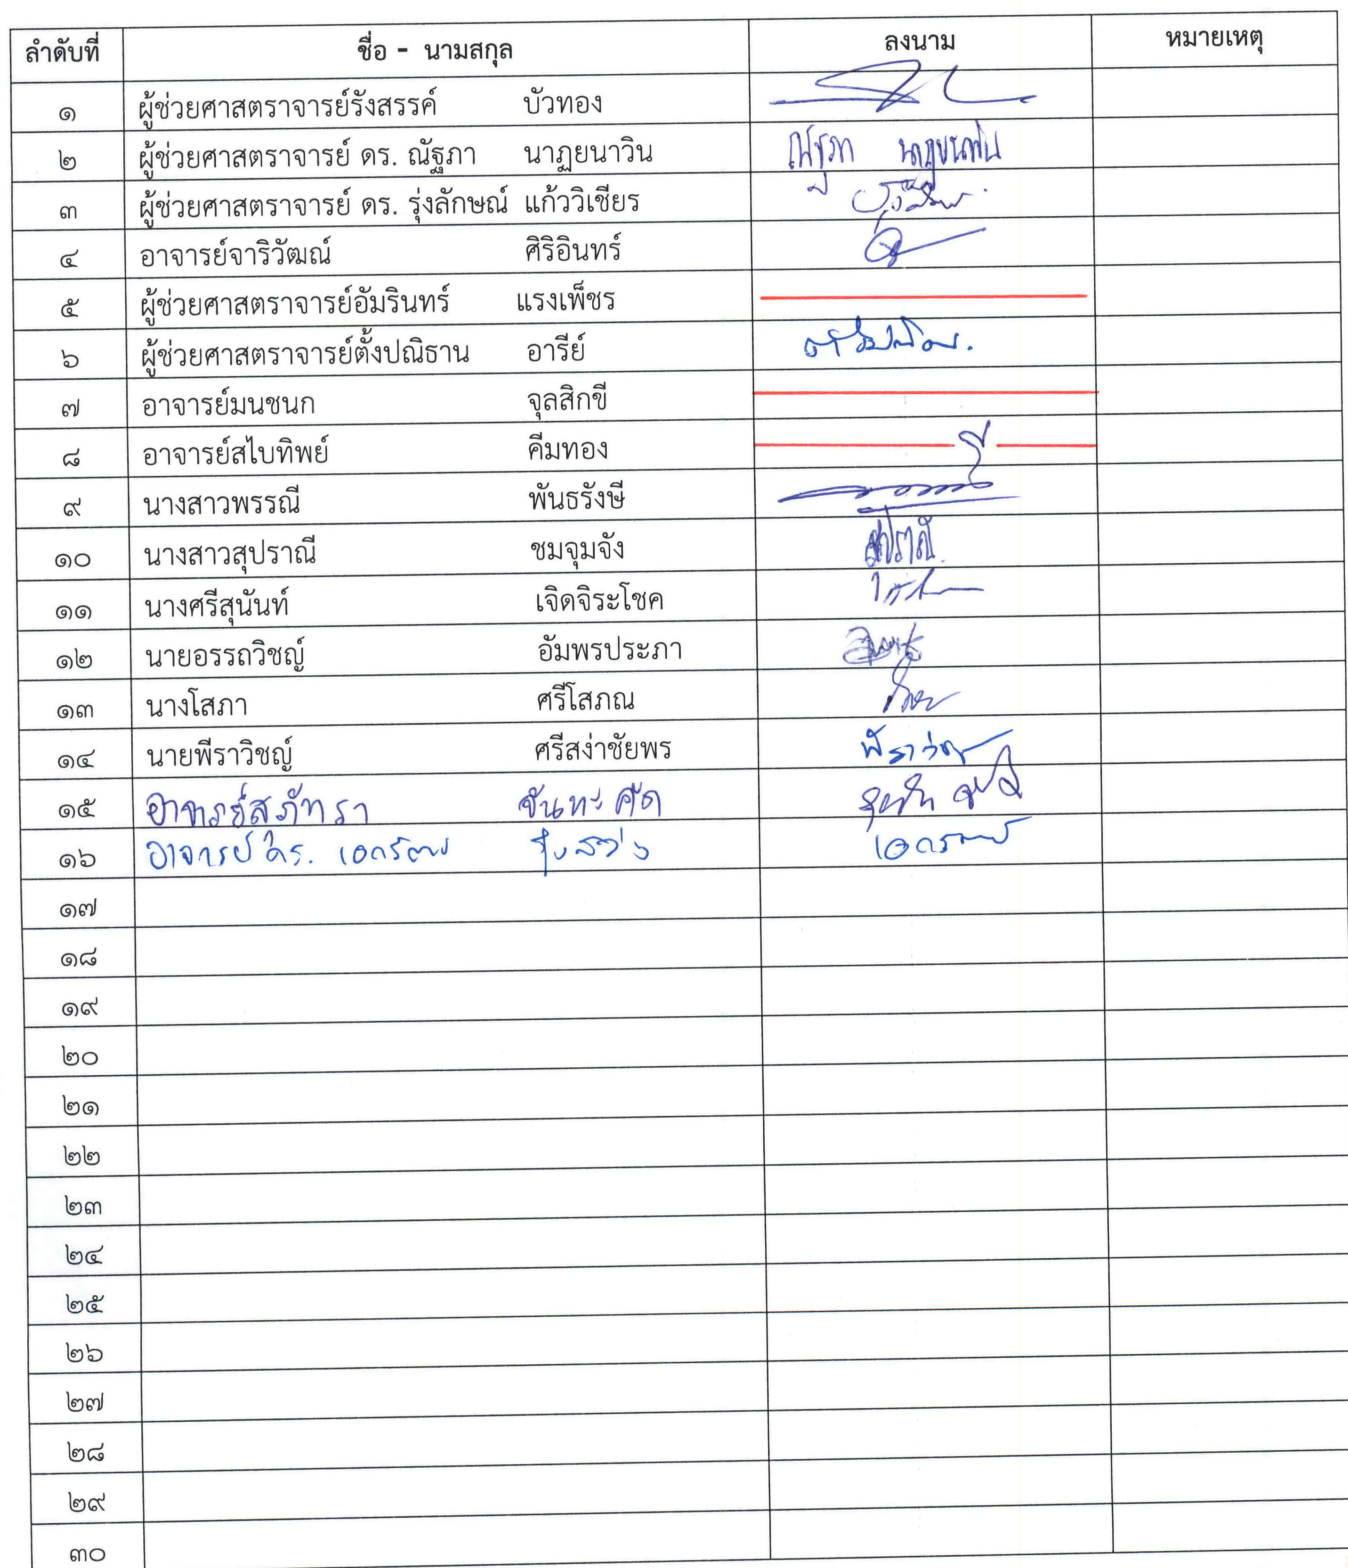 ลำดับที่ ชื่อ - นามสกุล ลงนาม หมายเหตุ
๑ ผู้ช่วยศาสตราจารย์รังสรรค์ บัวทอง
๒ ผู้ช่วยศาสตราจารย์ ดร. ณัฐภา นาฏยนาวิน ณัฐภา นาฏยนาวิน
๓ ผู้ช่วยศาสตราจารย์ ดร. รุ่งลักษณ์ แก้ววิเชียร
๔ อาจารย์จาริวัฒณ์ ศิริอินทร์
๕ ผู้ช่วยศาสตราจารย์อัมรินทร์ แรงเพ็ชร
๖ ผู้ช่วยศาสตราจารย์ตั้งปณิธาน อารีย์
๗ อาจารย์มนชนก จุลสิกขี
๘ อาจารย์สไบทิพย์ คีมทอง
๙ นางสาวพรรณี พันธรังษี
๑๐ นางสาวสุปราณี ชมจุมจัง สุปราณี
๑๑ นางศรีสุนันท์ เจิดจิระโชค
๑๒ นายอรรถวิชญ์ อัมพรประภา
๑๓ นางโสภา ศรีโสภณ
๑๔ นายพีราวิชญ์ ศรีสง่าชัยพร
๑๕ อาจารย์สุภัทรา จันทะคัด
๑๖ อาจารย์ ดร. เอกรัตน์
๑๗
๑๘
๑๙
๒๐
๒๑
๒๒
๒๓
๒๔
๒๕
๒๖
๒๗
๒๘
๒๙
๓๐